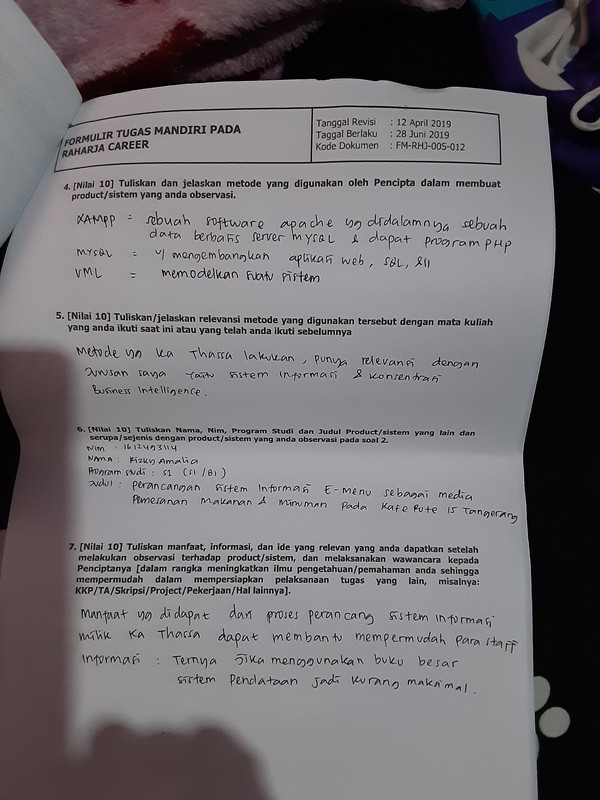 FORMULIR TUGAS MANDIRI PADA
RAHARJA CAREER
Tanggal Revisi : 12 April 2019
Taggal Berlaku : 28 Juni 2019
Kode Dokumen : FM-RHJ-005-012
4. [Nilai 10] Tuliskan dan jelaskan metode yang digunakan oleh Pencipta dalam membuat
product/sistem yang anda observasi.
XAMPP = sebuah software apache yg didalamnya sebuah
data berbasis server MYSQL & dapat program PHP
MYSQL = u/ mengembangkan aplikasi web, SQL, dll
UML = memodelkan suatu sistem
5. [Nilai 10] Tuliskan/jelaskan relevansi metode yang digunakan tersebut dengan mata kuliah
yang anda ikuti saat ini atau yang telah anda ikuti sebelumnya
Metode yg ka Thassa lakukan, punya relevansi dengan
Jurusan saya yaitu sistem informasi & konsentrasi
Business Intelligence.
6. [Nilai 10] Tuliskan Nama, Nim, Program Studi dan Judul Product/sistem yang lain dan
serupa/sejenis dengan product/sistem yang anda observasi pada soal 2.
NIM : 1612493114
NAMA : Rizky Amalia
Program studi : S1 (SI/BI)
Judul : perancangan sistem Informasi E-Menu sebagai media
Pemesanan Makanan & Minuman pada Kafe Rute 15 Tangerang
7. [Nilai 10] Tuliskan manfaat, informasi, dan ide yang relevan yang anda dapatkan setelah
melakukan observasi terhadap product/sistem, dan melaksanakan wawancara kepada
Penciptanya [dalam rangka meningkatkan ilmu pengetahuan/pemahaman anda sehingga
mempermudah dalam mempersiapkan pelaksanaan tugas yang lain, misalnya:
KKP/TA/Skripsi/Project/Pekerjaan/Hal lainnya].
Manfaat yg didapat dari proses perancang sistem informasi
milik Ka Thassa dapat membantu mempermudah para staff
Informasi : Ternya jika menggunakan buku besar
sistem Pendataan jadi kurang maksimal.